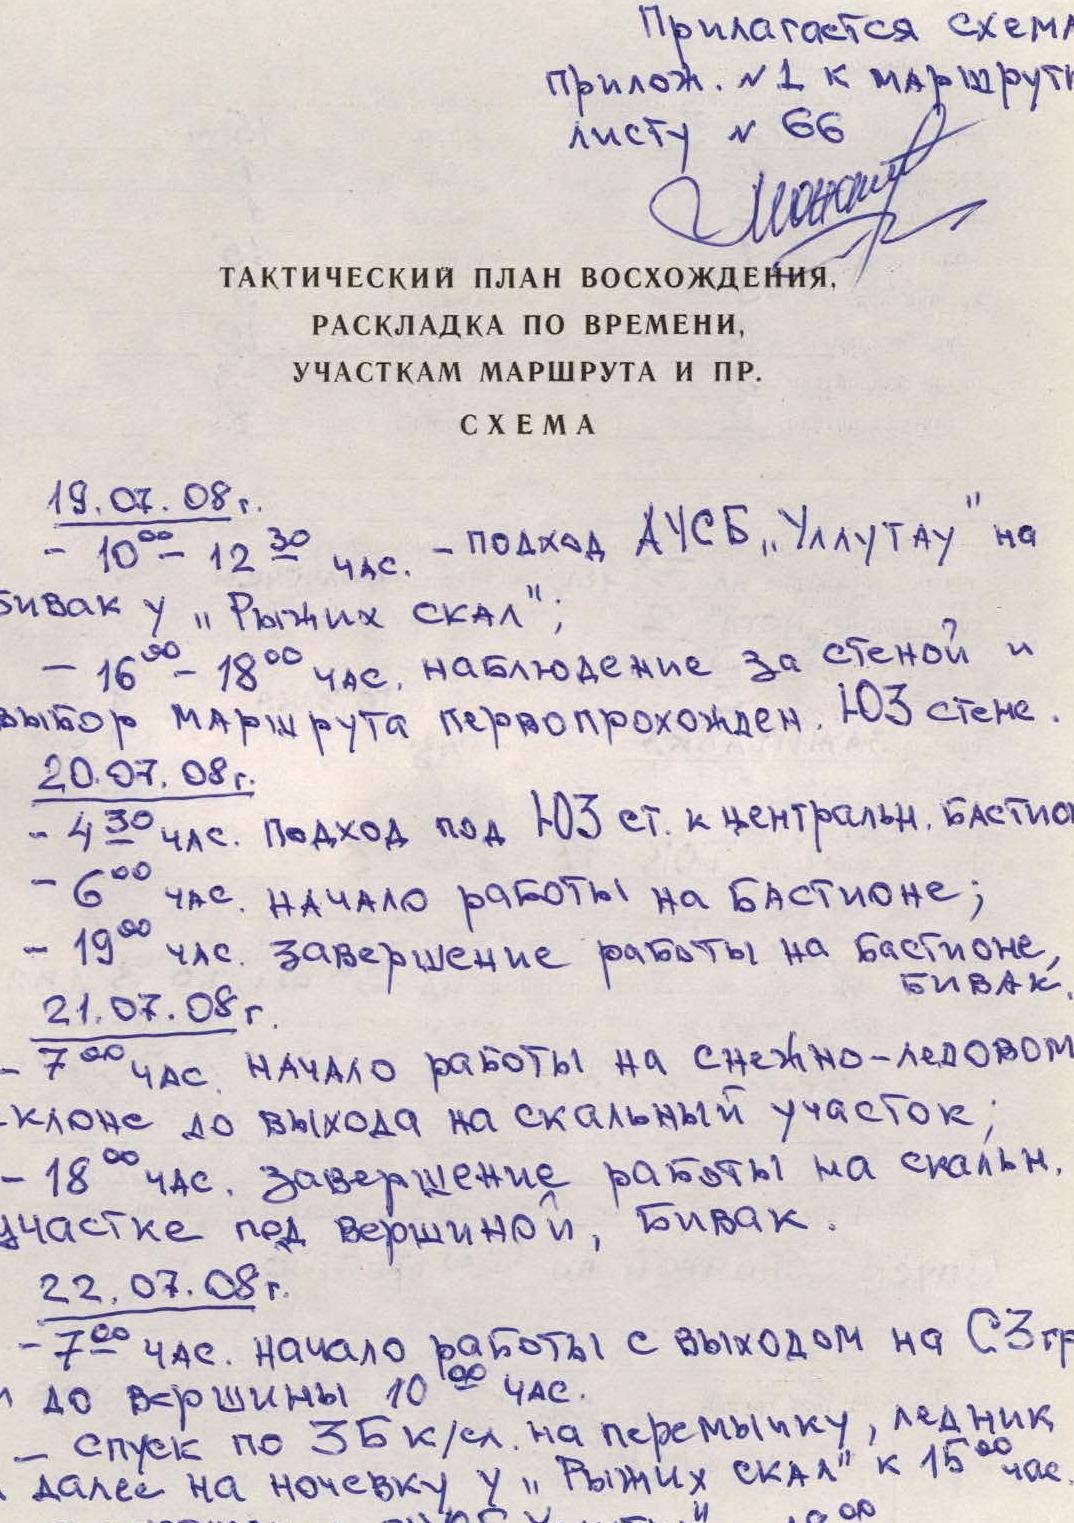 Прилагается схема
прилож. №1 к маршрутн
листу № 66
ТАКТИЧЕСКИЙ ПЛАН ВОСХОЖДЕНИЯ,
РАСКЛАДКА ПО ВРЕМЕНИ,
УЧАСТКАМ МАРШРУТА И ПР.
СХЕМА
19.07.08г.
- 10⁰⁰ - 12³⁰ час. - подход АУСБ „Уллутау" на
бивак у „Рыжих скал";
- 16⁰⁰ - 18⁰⁰ час. наблюдение за стеной и
выбор маршрута первопрохожден. ЮЗ стене.
20.07.08г.
- 4³⁰ час. подход под ЮЗ ст. к центральн. бастион
- 6⁰⁰ час. начало работы на бастионе;
- 19⁰⁰ час. завершение работы на бастионе,
бивак.
21.07.08г.
- 7⁰⁰ час. начало работы на снежно-ледовом
склоне до выхода на скальный участок;
- 18⁰⁰ час. завершение работы на скальн.
участке под вершиной, бивак.
22.07.08г.
- 7⁰⁰ час. начало работы с выходом на СЗ гр
и до вершины 10⁰⁰ час.
- спуск по 3Б к/сл. на перемычку, ледник
и далее на ночевку у „Рыжих скал" к 15⁰⁰ час.